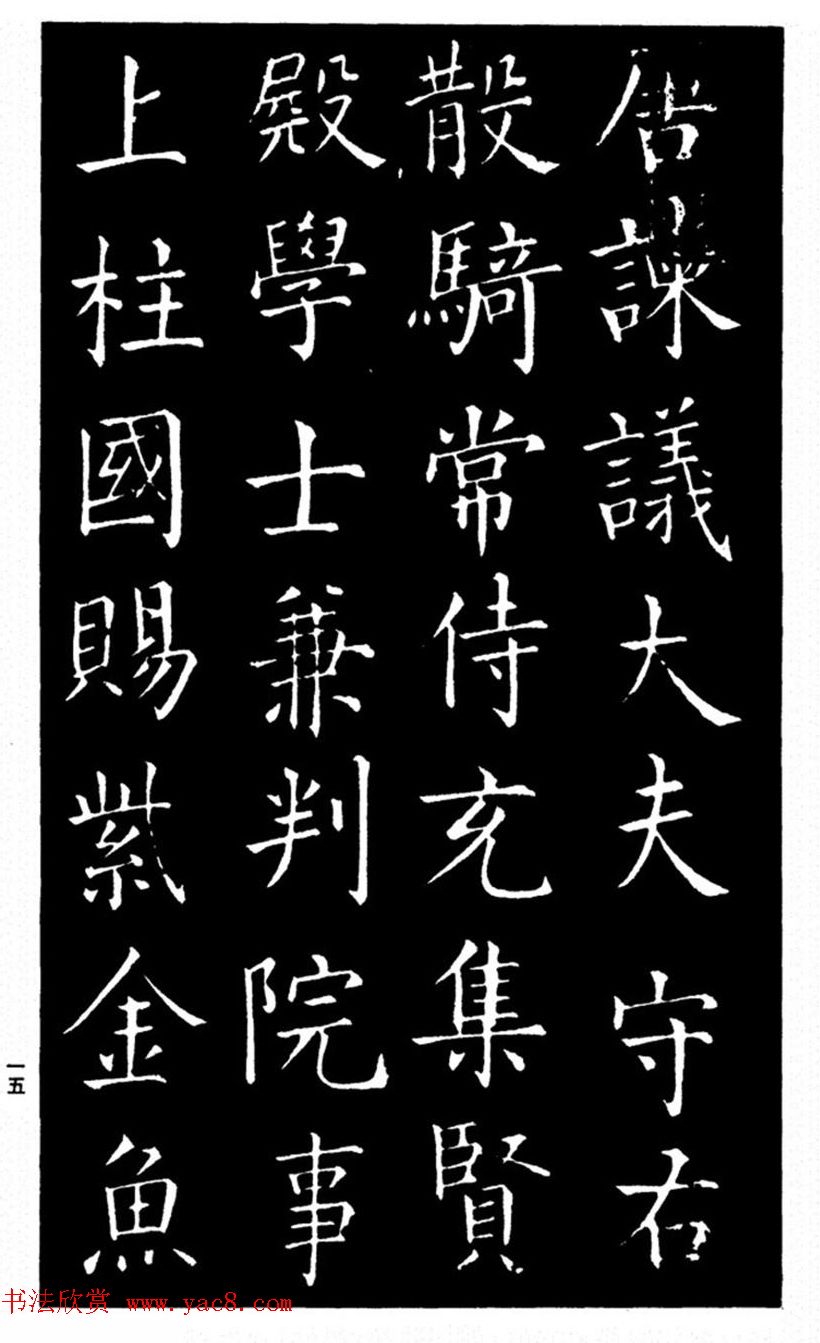 諫議大夫守右
散騎常侍充集賢
殿學士兼判院事
上柱國賜紫金魚
一五
书法欣赏 www.yac8.com